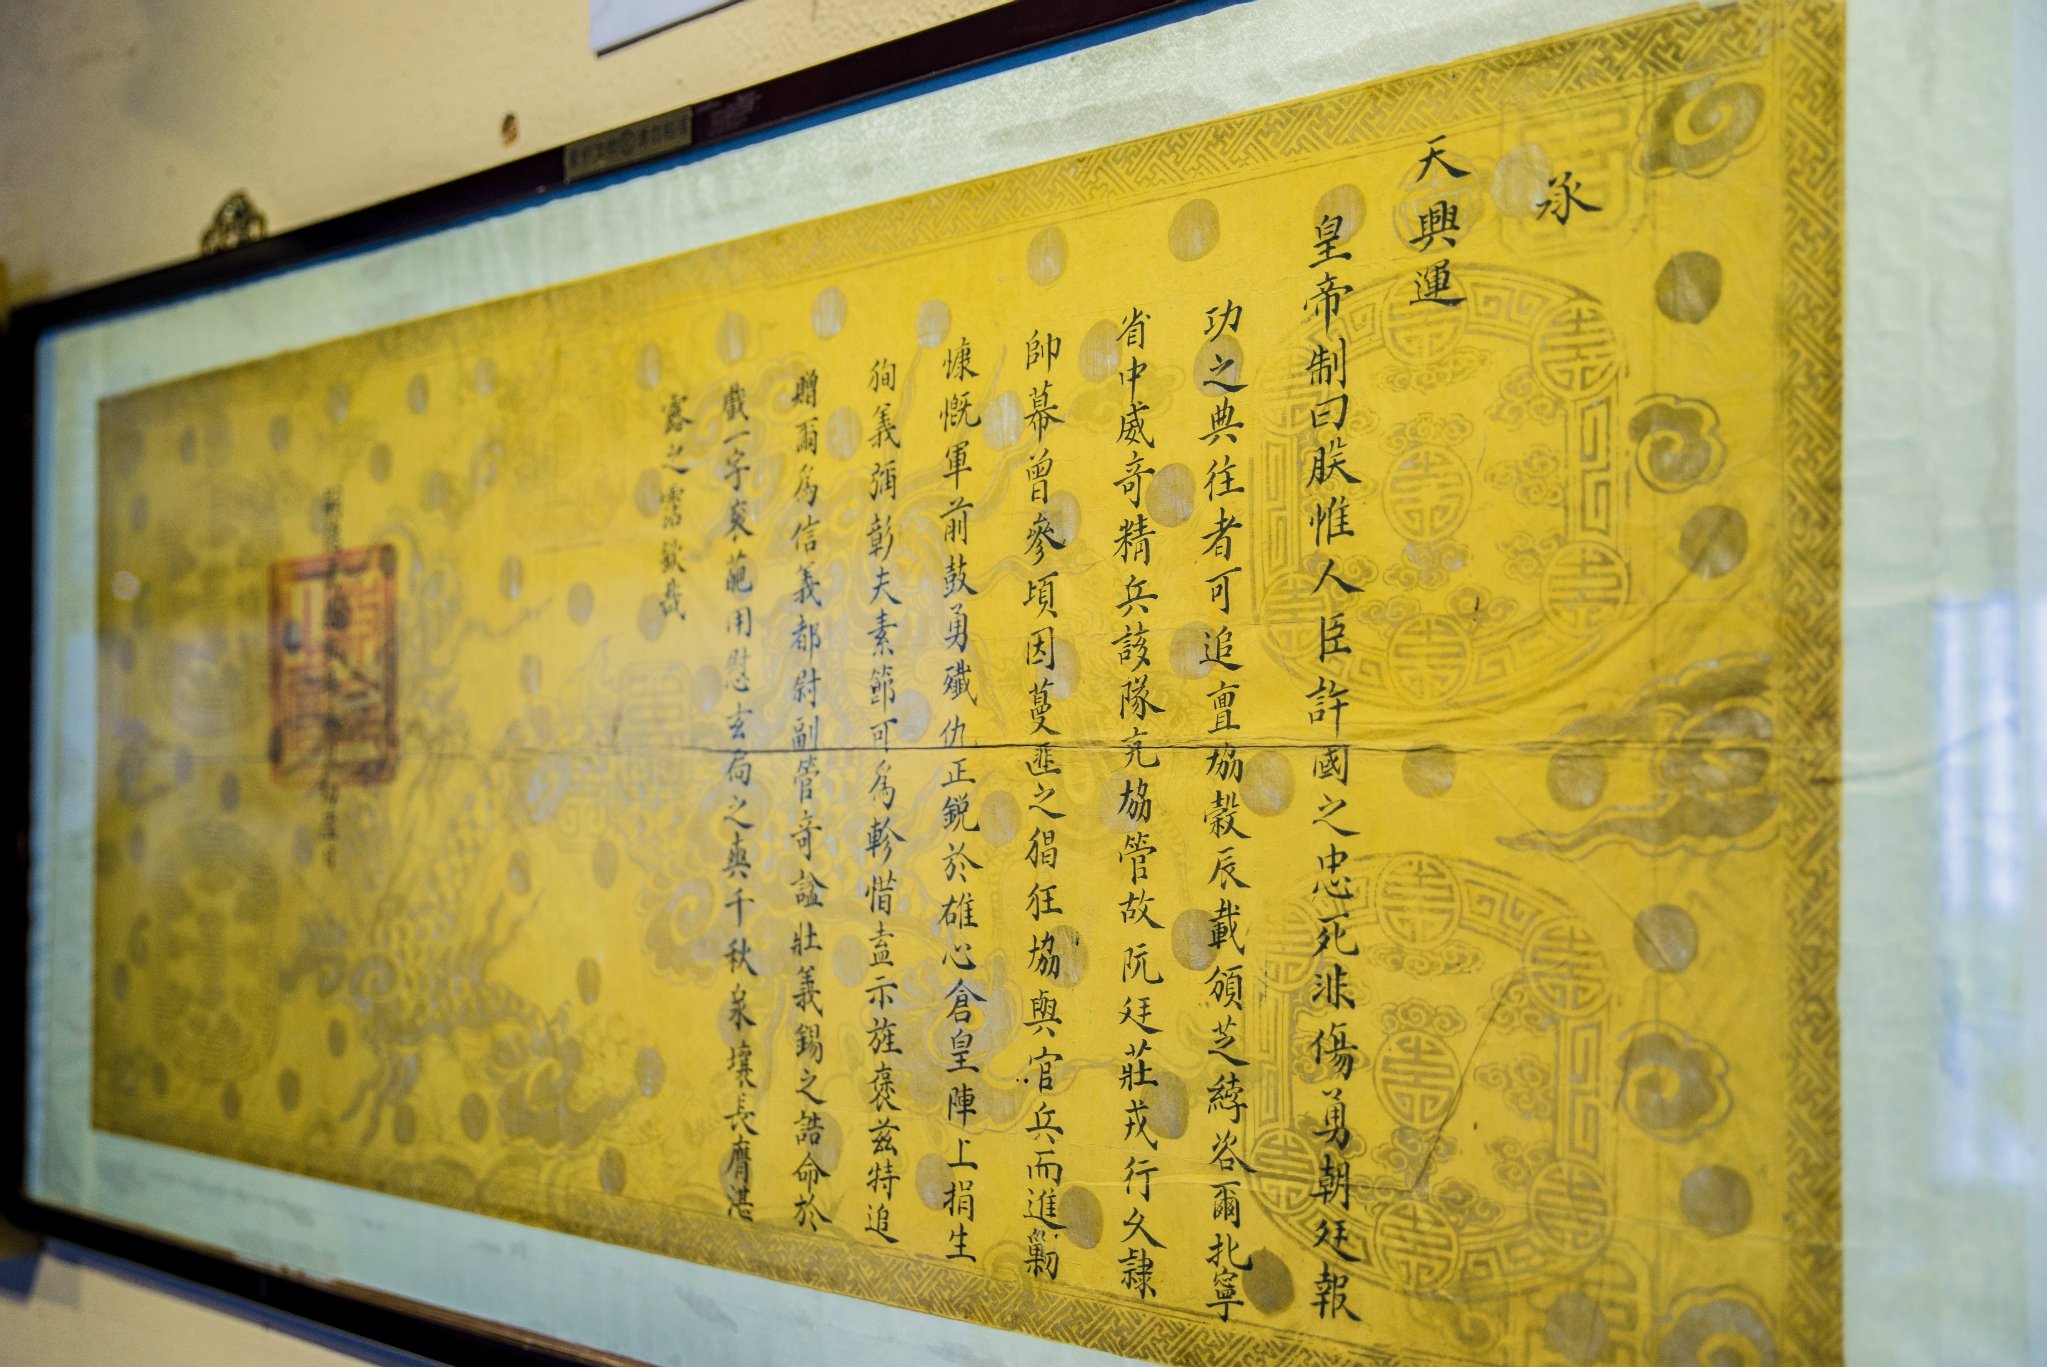 承
天興運
皇帝制曰朕惟人臣許國之忠死非傷勇朝廷報
功之典往者可追亶協穀辰載頒芝綍咨爾北寧
省中威奇精兵該隊充協管故阮廷莊戎行久隸
帥幕曾參頃因蔓匪之猖狂協與官兵而進剿
慷慨軍前鼓勇殲仇正銳於雄心倉皇陣上捐生
殉義彌彰夫素節可為軫惜盍示旌褒茲特追
贈爾為信義都尉副管奇諡壯義錫之誥命於
戲一字袞葩用慰玄局之爽千秋泉壤長膺湛
露之霑欽哉